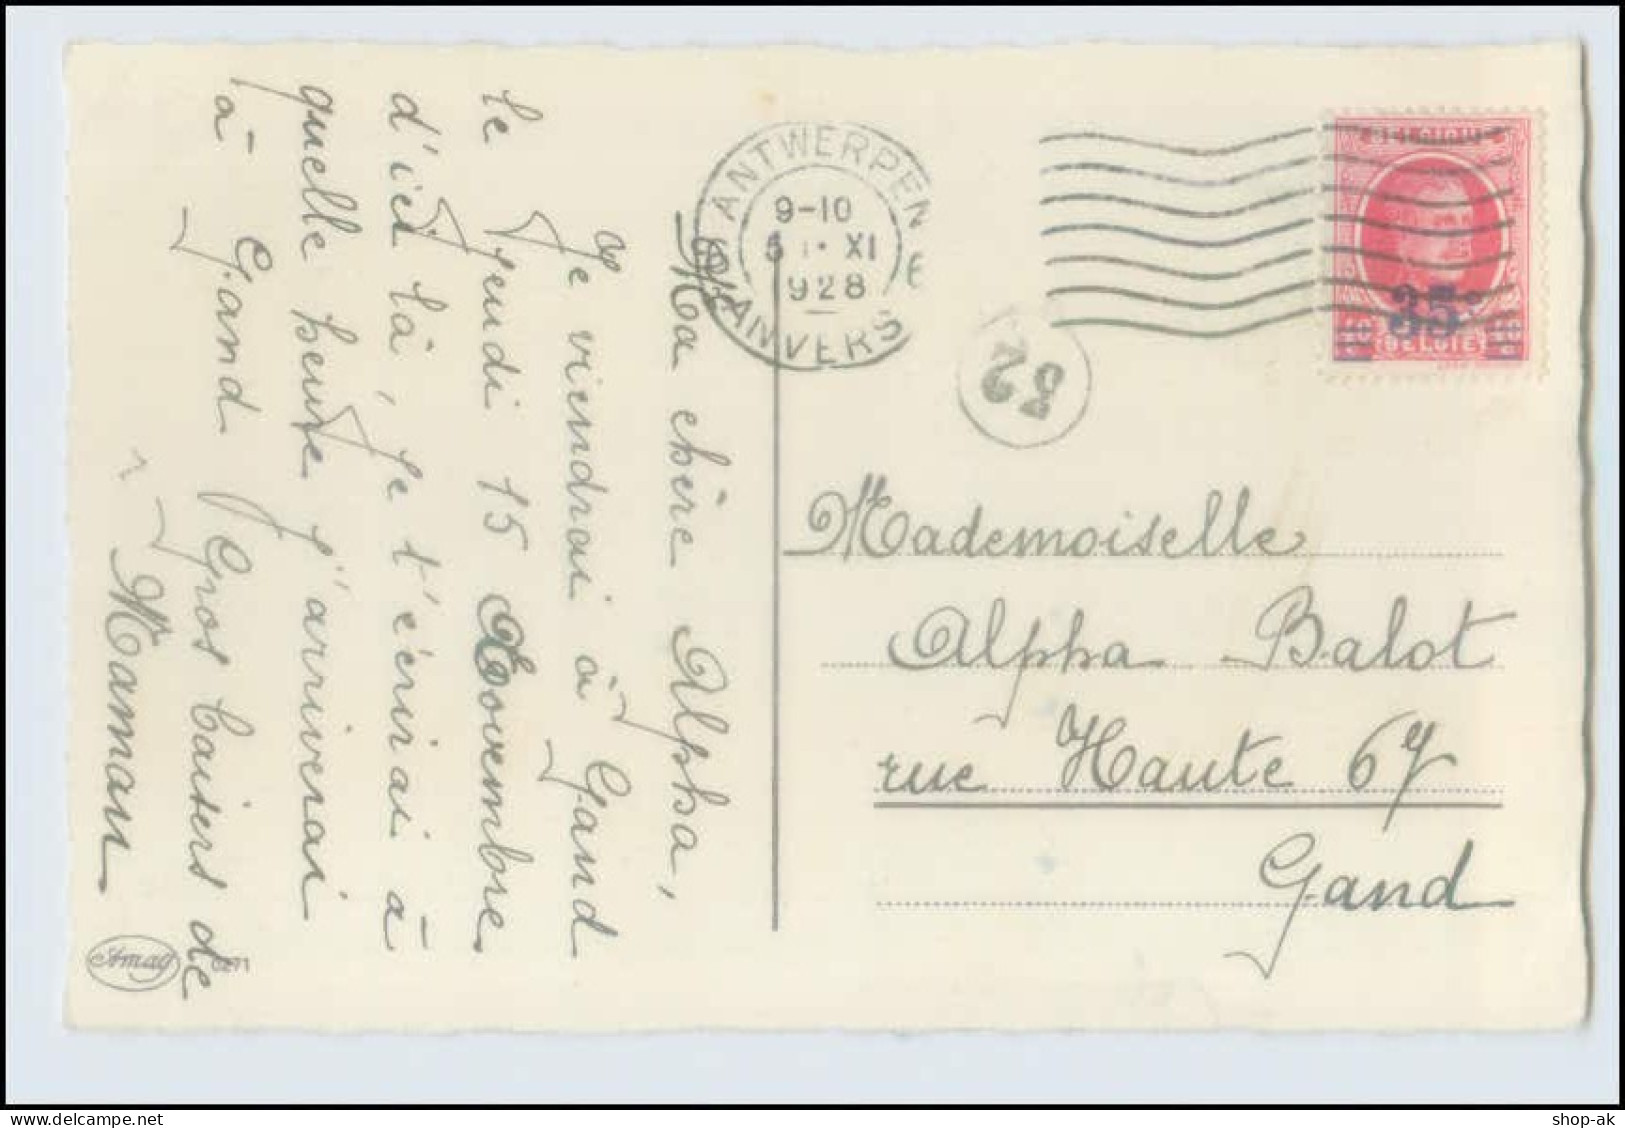 Ma chère Alpha,
Je viendrai à Gand
le Jeudi 15 Novembre
d'ici là, je t'écrirai à
quelle heure j'arriverai
à Gand Gros baisers de
Maman
Amag
ANTWERPEN
9-10
5 XI
1928
6 ANVERS 6
32
BELGIQUE
35c
BELGIE
Mademoiselle
Alpha Balot
rue Haute 67
Gand
shop-ak